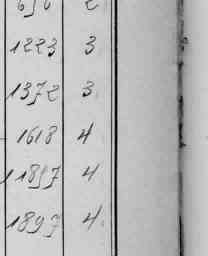 1223 3
1372 3
1618 4
11897 4
1897 4